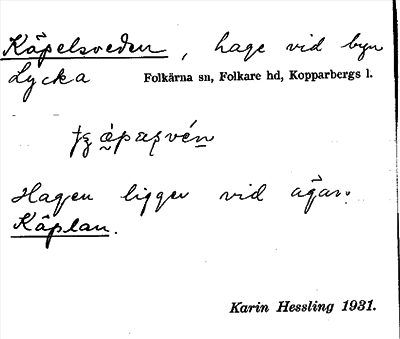 Käpelsveden, hage vid byn
Lycka Folkärna sn, Folkare hd, Kopparbergs l.
Hagen ligger vid ägan:
Käplan.
Karin Hessling 1931.